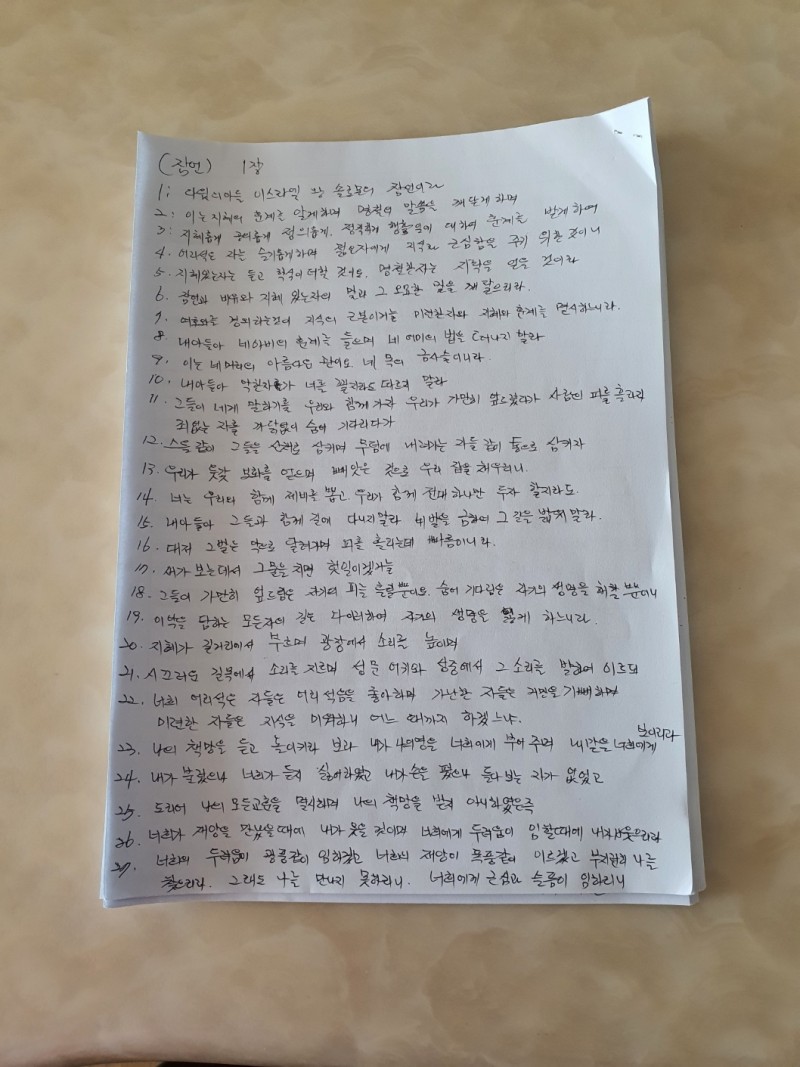 (잠언) 1장
1; 다윗의아들 이스라엘 왕 솔로몬의 잠언이라
2; 이는 지혜와 훈계를 알게하며 명철의 말씀을 깨닫게 하며
3; 지혜롭게 공의롭게 정의롭게, 정직하게 행할일에 대하여 훈계를 받게 하여
4. 어리석은 자는 슬기롭게하며 젊은자에게 지식과 근심함을 주기 위한 것이니
5. 지혜있는자는 듣고 학식이 더할 것이요. 명철한자는 지략을 얻을 것이라
6. 잠언과 비유와 지혜 있는자의 말과 그 오묘한 말을 깨달으리라.
7. 여호와를 경외하는것이 지식의 근본이거늘 미련한자와 지혜와 훈계를 멸시하느니라.
8. 내아들아 네아비의 훈계를 들으며 네 어미의 법을 떠나지 말라
9. 이는 네머리의 아름다운 관이요. 네 목의 금사슬이니라.
10. 내아들아 악한자가 너를 꾈지라도 따르지 말라
11. 그들이 네게 말하기를 우리와 함께 가자 우리가 가만히 엎드렸다가 사람의 피를 흘리자
죄없는 자를 까닭없이 숨어 기다리다가
12. 스올같이 그들을 산채로 삼키며 무덤에 내려가는 자들같이 통으로 삼키자
13. 우리가 온갖 보화를 얻으며 빼앗은 것으로 우리 집을 채우리니.
14. 너는 우리와 함께 제비를 뽑고 우리가 함께 전대 하나만 두자 할지라도.
15. 내아들아 그들과 함께 길에 다니지말라 네 발을 금하여 그 길을 밟지 말라.
16. 대저 그발은 악으로 달려가며 피를 흘리는데 빠름이니라.
17. 새가 보는데서 그물을 치면 헛일이겠거늘
18. 그들이 가만히 엎드림은 자기의 피를 흘릴뿐이요. 숨어 기다림은 자기의 생명을 해할 뿐이니
19. 이익을 탐하는 모든자의 길은 다 이러하여 자기의 생명을 잃게 하느니라.
20. 지혜가 길거리에서 부르며 광장에서 소리를 높이며
21. 시끄러운 길목에서 소리를 지르며 성문 어귀와 성중에서 그 소리를 발하여 이르되
22. 너희 어리석은 자들은 어리석음을 좋아하며 가난한 자들은 거만을 기뻐하며
미련한 자들은 지식을 미워하니 어느 때까지 하겠느냐.
23. 나의 책망을 듣고 돌이키라 보라 내가 나의영을 너희에게 부어 주며 내 말을 너희에게 보이리라
24. 내가 불렀으나 너희가 듣기 싫어하였고 내가 손을 폈으나 돌아 보는 자가 없었고
25. 도리어 나의 모든교훈을 멸시하며 나의 책망을 받지 아니하였은즉
26. 너희가 재앙을 만날때에 내가 웃을 것이며 너희에게 두려움이 임할때에 내가 비웃으리라
27. 너희의 두려움이 광풍같이 임하겠고 너희의 재앙이 폭풍같이 이르겠고 부지런히 나를
찾으리라. 그래도 나를 만나지 못하리니. 너희에게 근심과 슬픔이 임하리니